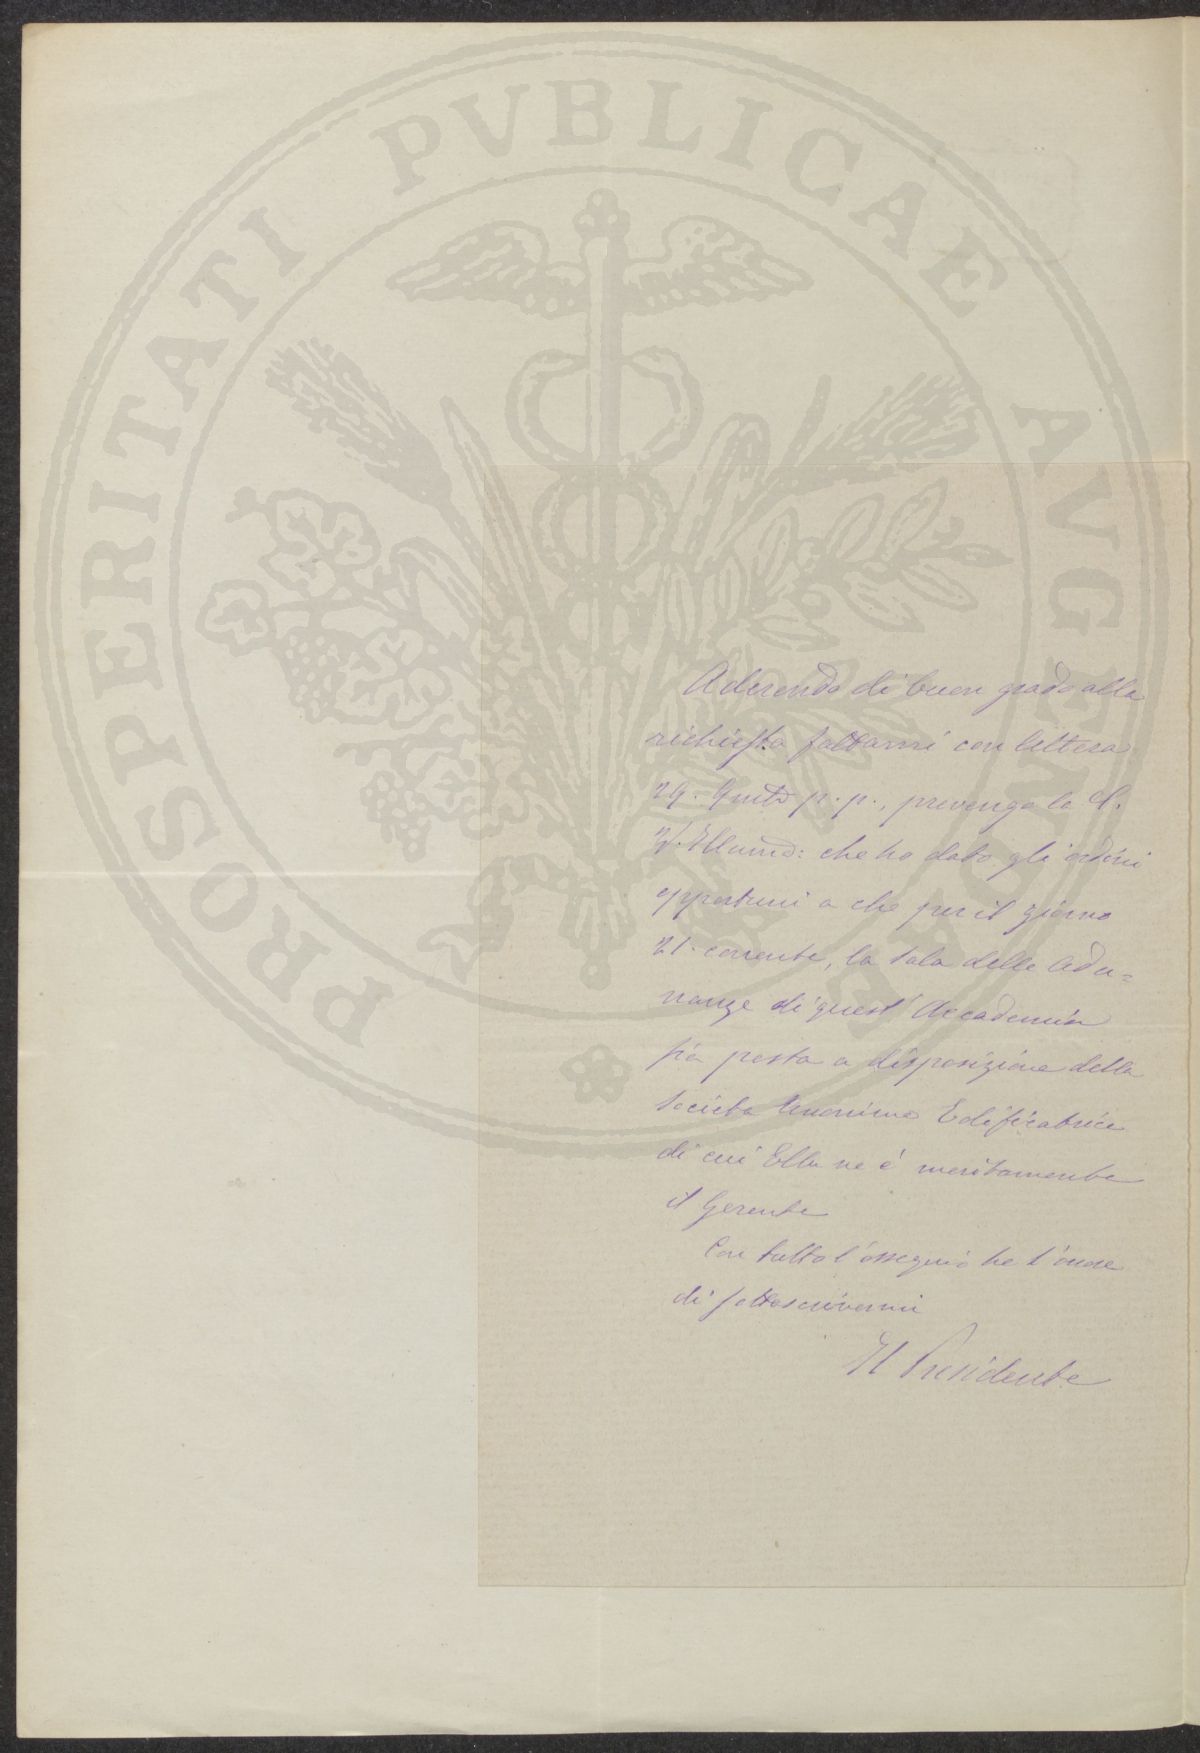 PROSPERITATI PVBLICAE AVGENDAE
Aderendo di buon grado alla
richiesta fattami con lettera
29. p. p., prevengo la S.
V. che ho dato gli ordini
opportuni a che per il giorno
21. corrente, la sala delle Adu=
nanze di quest' Accademia
sia posta a disposizione della
Società Anonima Edificatrice
di cui Ella ne è meritamente
il Gerente
Con tutto l'ossequio ho l'onore
di sottoscrivermi
Il Presidente